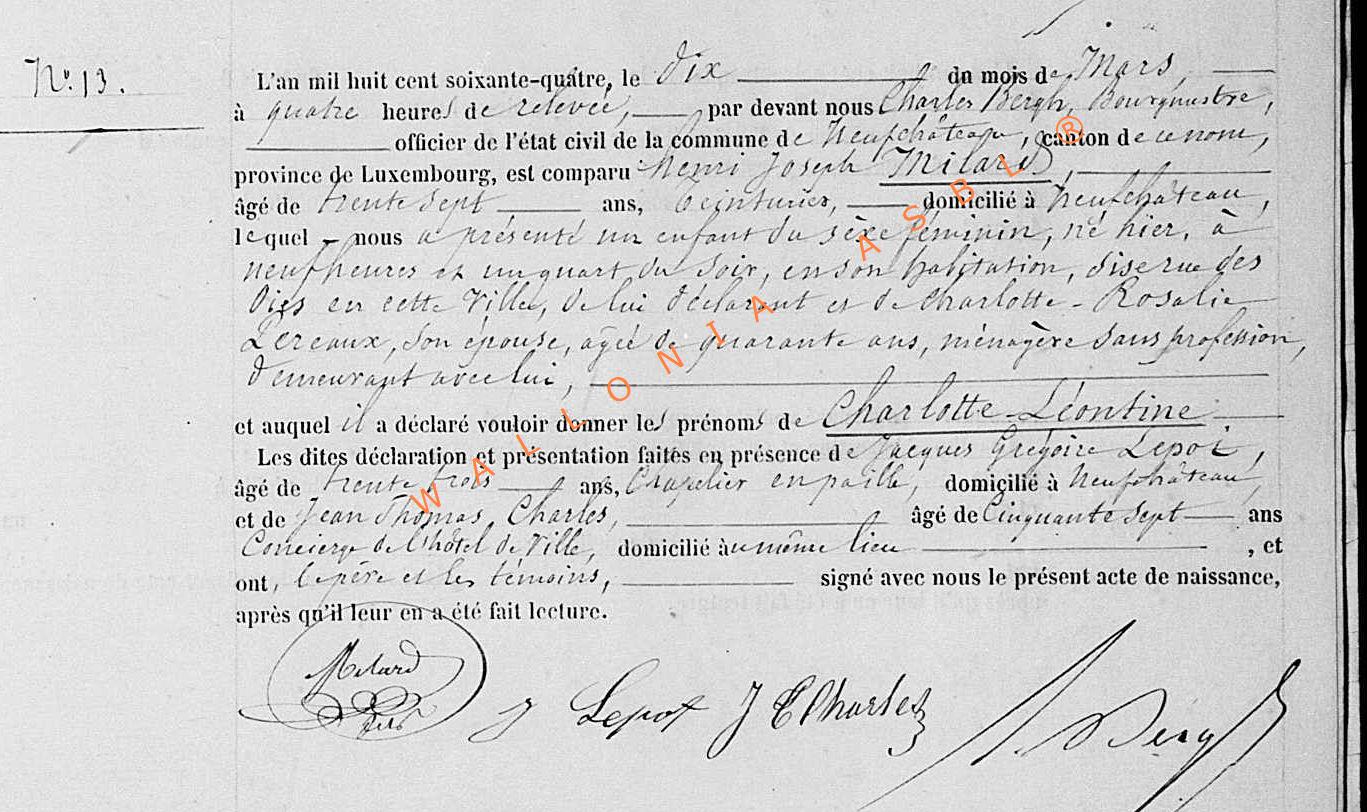 N° 13.
L'an mil huit cent soixante-quatre, le dix du mois de Mars,
à quatre heures de relevée, par devant nous Charles Bergh, Bourgmestre,
officier de l'état civil de la commune de Neufchâteau, canton de ce nom,
province de Luxembourg, est comparu Henri Joseph Milard,
âgé de trente sept ans, teinturier, domicilié à Neufchâteau,
lequel nous a présenté un enfant du sèxe féminin, né hier, à
neuf heures et un quart du soir, en son habitation, sise rue des
en cette Ville, de lui déclarant et de Charlotte-Rosalie
Lereaux, son épouse, agée de quarante ans, ménagère sans profession,
demeurant avec lui,
et auquel il a déclaré vouloir donner les prénoms de Charlotte-Léontine
Les dites déclaration et présentation faites en présence de Jacques Grégoire Lepot,
âgé de trente trois ans, Chapelier en paille, domicilié à Neufchâteau,
et de Jean Thomas Charles, âgé de Cinquante sept ans
Concierge de l'hôtel de Ville, domicilié au même lieu, et
ont, le père et les témoins, signé avec nous le présent acte de naissance,
après qu'il leur en a été fait lecture.
Milard fils
J Lepot J T Charles Bergh
WALLONIA ASBL ®